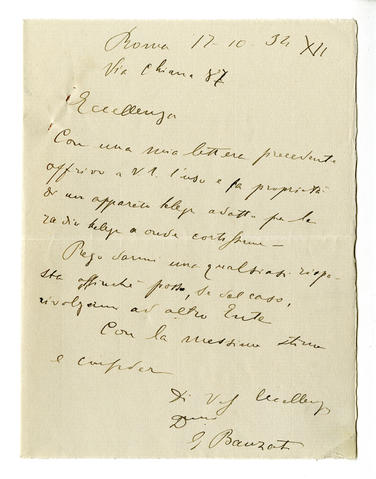 Roma 17-10-34 XII
Via Chiana 87
Eccellenza
Con una mia lettera precedente
offrivo a V.E. l'uso e la proprietà
di un apparecchio adatto per le
radio a onde cortissime -
Prego darmi una qualsiasi rispo-
sta affinchè possa, se del caso,
rivolgermi ad altro Ente
Con la massima stima
e
Di V.
G Banzati